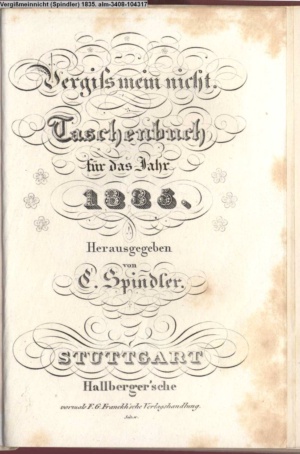 Vergißmeinnicht (Spindler) 1835. alm-3408-104317
Vergiss mein nicht.
Taschenbuch
für das Jahr
1835.
Herausgegeben
von
C. Spindler.
STUTTGART
Hallberger'sche
vormals F. G. Franckh'sche Verlagshandlung.